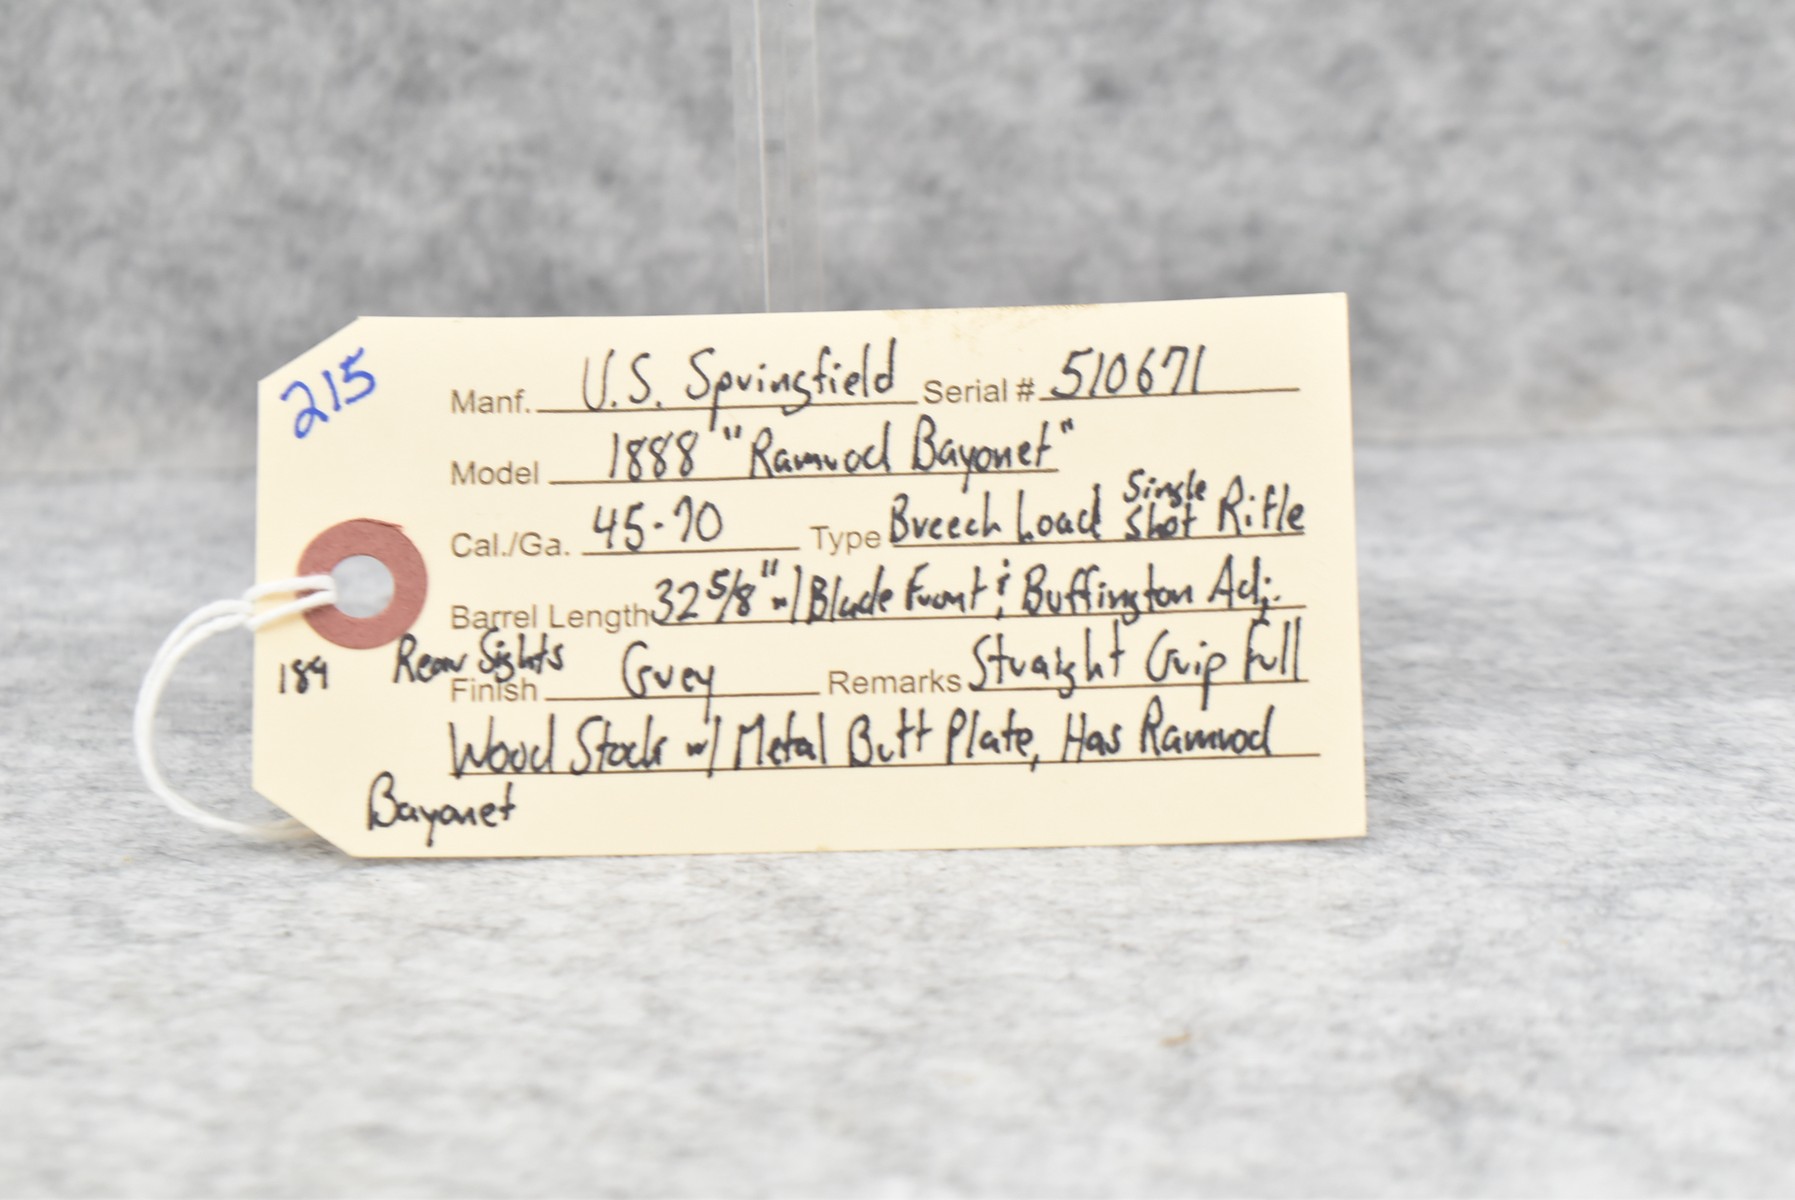 215
Manf. U.S. Springfield Serial # 510671
Model 1888 "Ramrod Bayonet"
Cal./Ga. 45-70 Type Breech Load Single Shot Rifle
Barrel Length 32 5/8" w/ Blade Front & Buffington Adj.
Rear Sights
189
Finish Grey Remarks Straight Grip Full
Wood Stock w/ Metal Butt Plate, Has Ramrod
Bayonet